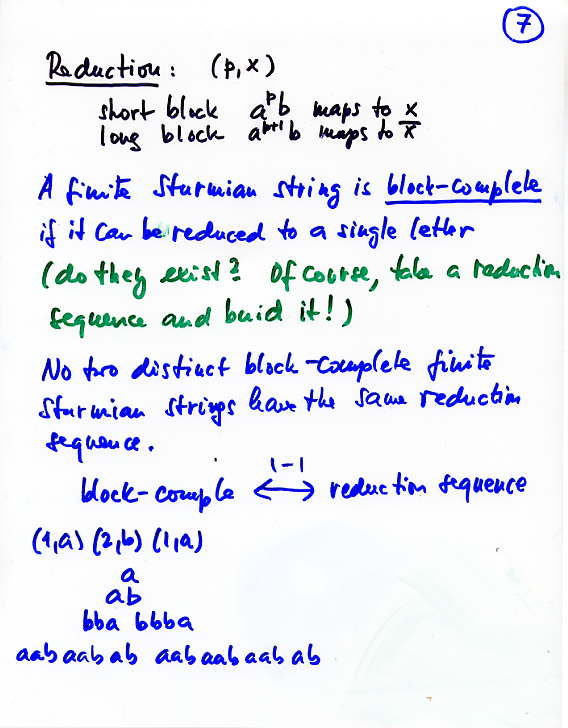 7
Reduction: (p,x)
short block a^p b maps to x
long block a^{p+1} b maps to x̄
A finite Sturmian string is block-complete
if it can be reduced to a single letter
(do they exist? Of course, take a reduction
sequence and buid it!)
No two distinct block-complete finite
Sturmian strings have the same reduction
sequence.
1-1
block-comple ⟷ reduction sequence
(1,a) (2,b) (1,a)
a
ab
bba bbba
aabaabab aabaabaabab